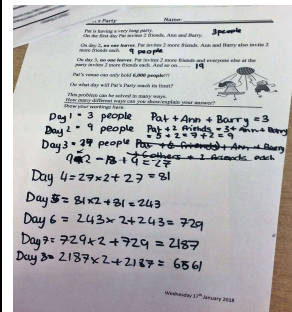 's Party Name:
Pat is having a very long party.
On the first day Pat invites 2 friends, Ann and Barry. 3 people
On day 2, no one leaves. Pat invites 2 more friends. Ann and Barry also invite 2
more friends each. 9 people
On day 3, no one leaves. Pat invites 2 more friends and everyone else at the
party invites 2 more friends each. And so on...... 19
Pat's venue can only hold 6,000 people!!!
On what day will Pat's Party reach its limit?
This problem can be solved in many ways.
How many different ways can you show/explain your answer?
Show your workings here.
Day 1 = 3 people Pat + Ann + Barry = 3
Day 2 = 9 people Pat + 2 friends = 3 + Ann + Barry
= 5 + 2 = 7 + 2 = 9
Day 3 = 27 people Pat + Ann + Barry
+ 2 friends each
9×2 = 18 + 9 = 27
Day 4 = 27×2 + 27 = 81
Day 5 = 81×2 + 81 = 243
Day 6 = 243×2 + 243 = 729
Day 7 = 729×2 + 729 = 2187
Day 8 = 2187×2 + 2187 = 6561
Wednesday 17th January 2018